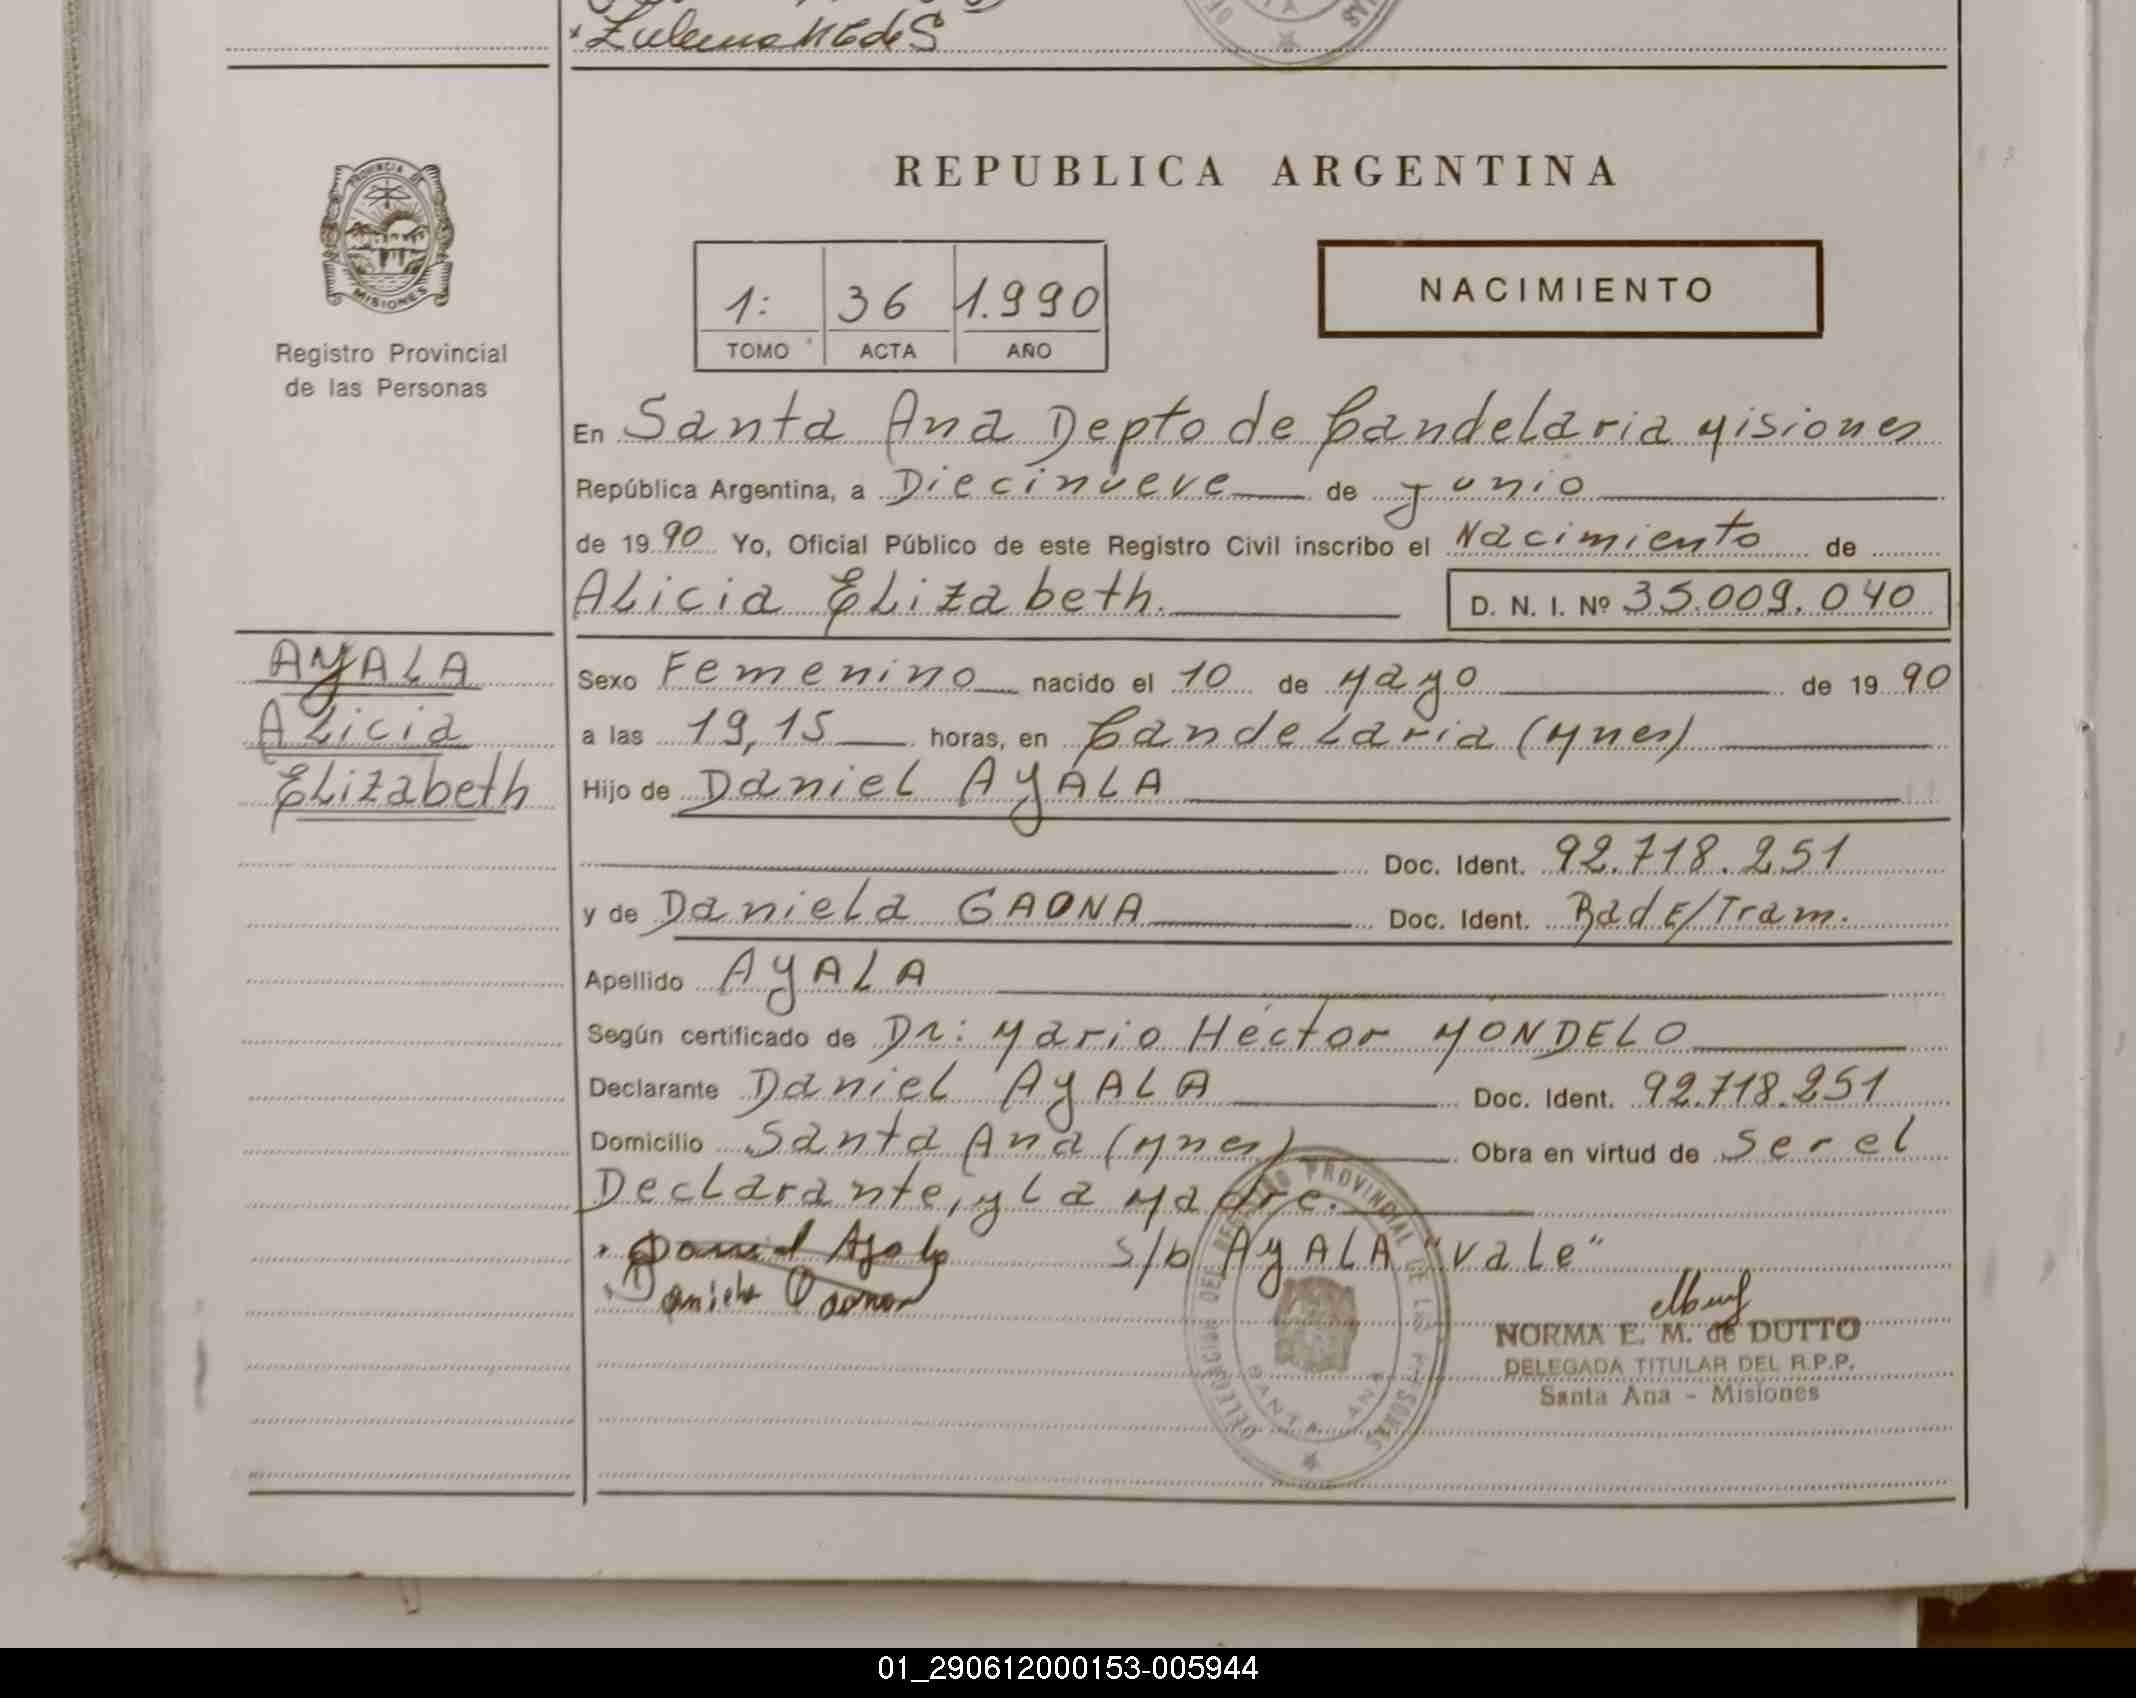 REPUBLICA ARGENTINA
PROVINCIA DE MISIONES
Registro Provincial
de las Personas
1: 36 1.990
TOMO ACTA AÑO
NACIMIENTO
En Santa Ana Depto de Candelaria Misiones
República Argentina, a Diecinueve de Junio
de 1990 Yo, Oficial Público de este Registro Civil inscribo el Nacimiento de
Alicia Elizabeth. D. N. I. Nº 35.009.040
AYALA
Alicia
Elizabeth
Sexo Femenino nacido el 10 de Mayo de 1990
a las 19,15 horas, en Candelaria (Mnes)
Hijo de Daniel AYALA
Doc. Ident. 92.718.251
y de Daniela GAONA Doc. Ident. Rad E/Tram.
Apellido AYALA
Según certificado de Dr: Mario Héctor MONDELO
Declarante Daniel AYALA Doc. Ident. 92.718.251
Domicilio Santa Ana (Mnes) Obra en virtud de Ser el
Declarante, y La Madre.
Daniel Ayala S/b AYALA "vale"
Daniela Gaona
DELEGACION DEL REGISTRO PROVINCIAL DE LAS PERSONAS
SANTA ANA
NORMA E. M. de DUTTO
DELEGADA TITULAR DEL R.P.P.
Santa Ana - Misiones
01_290612000153-005944